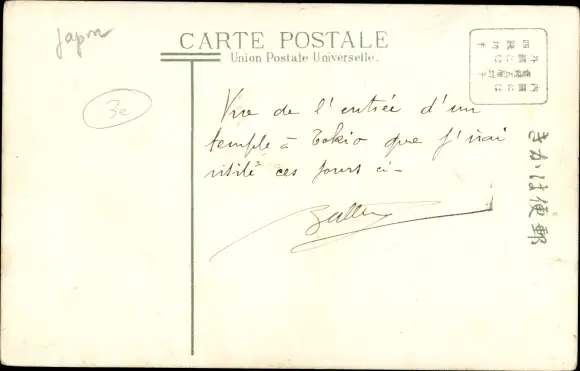 Japon
CARTE POSTALE
Union Postale Universelle.
3e
Vue de l'entrée d'un
temple à Tokio que j'irai
visité ces jours ci-
きかは便郵